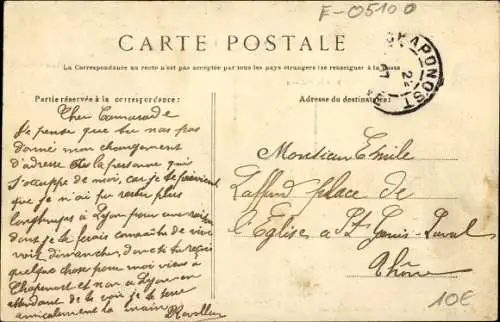 F-05100
CARTE POSTALE
CHAPONOST
La Correspondance au recto n'est pas acceptée par tous les pays étrangers (se renseigner à la Poste
Partie réservée à la correspondance:
Adresse du destinataire:
Cher Camarade
Je pense que tu n'as pas
donné mon changement
d'adresse à la personne qui
s'occuppe de moi, car je te prévient
que je n'ai pu rester plus
longtemps à Lyon pour
dont je te ferais de vive
voix dimanche, donc si tu reçois
quelque chose pour moi viens à
Chaponost et non à Lyon en
attendant de te voir je te serre
amicalement la main
Monsieur Emile
Laffond place de
l'Eglise à St-Genis-Laval
Rhône
10€